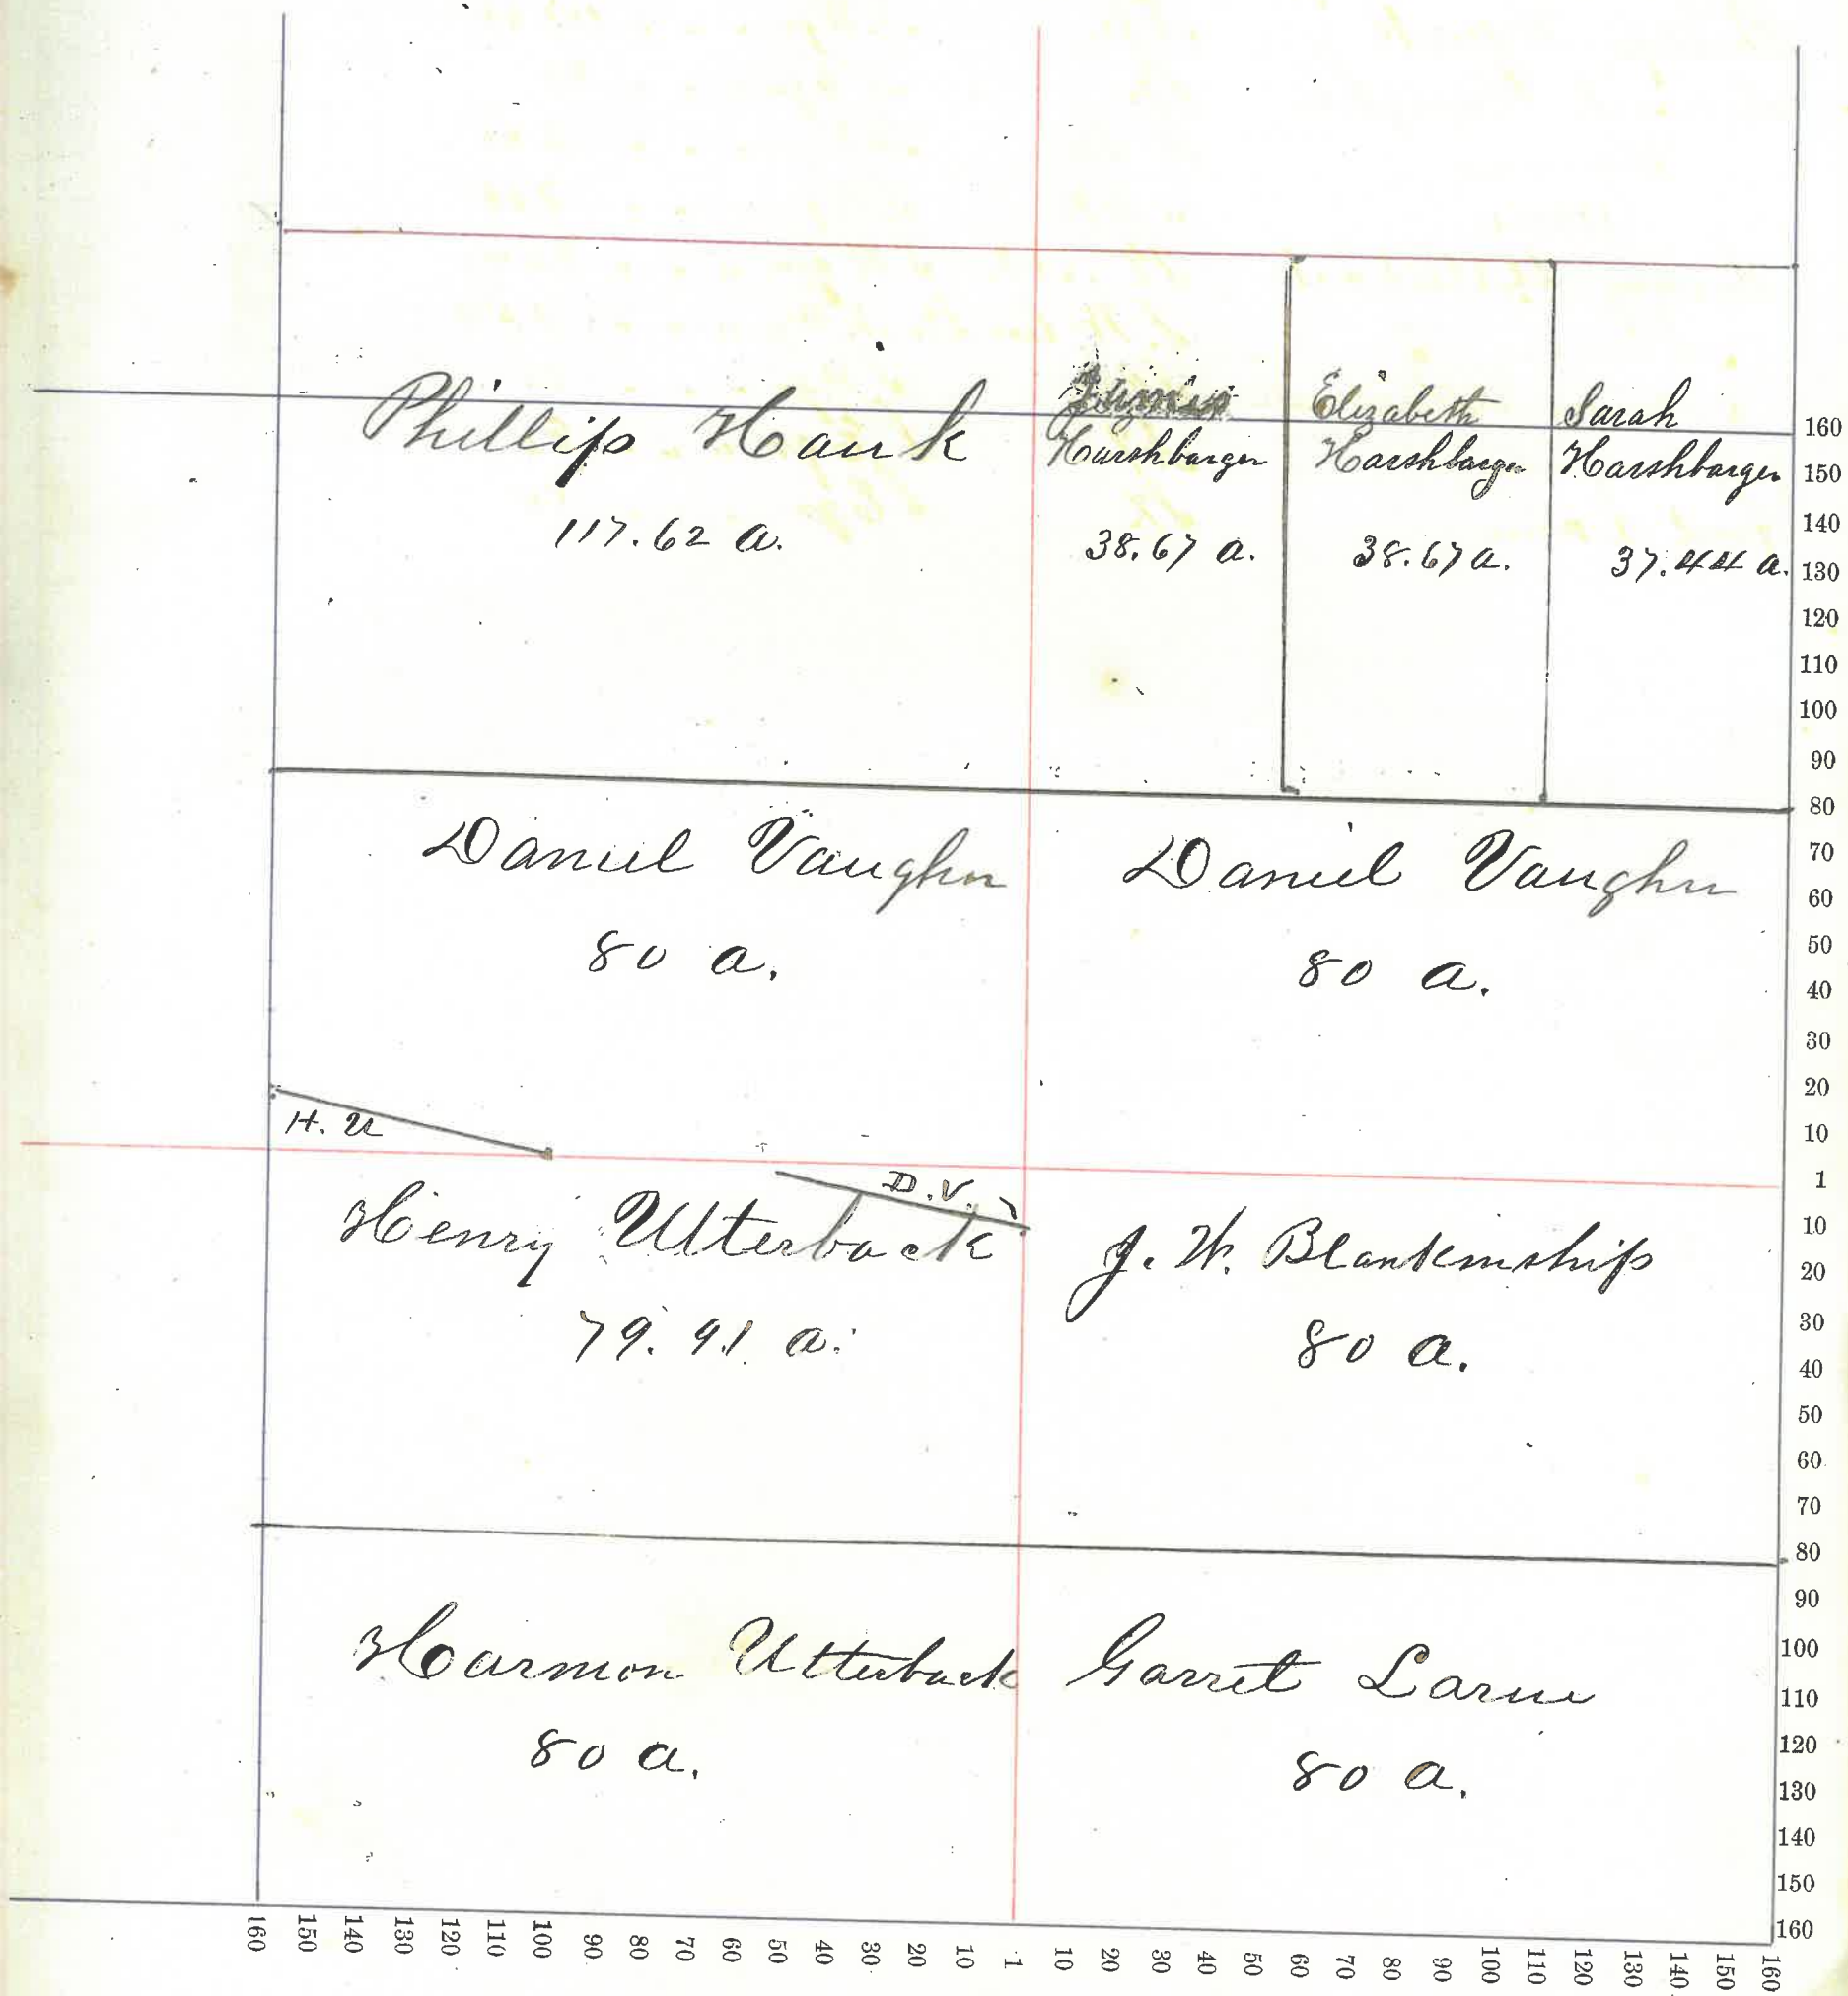 Phillip Hauk
117.62 a.
Harshbarger
38.67 a.
Elizabeth
Harshbarger
38.67 a.
Sarah
Harshbarger
37.44 a.
Daniel Vaughn
80 a.
Daniel Vaughn
80 a.
H. U
D. V.
Henry Utterback
79.91 a.
J. W. Blankenship
80 a.
Harmon Utterback
80 a.
Garret Larue
80 a.
160
150
140
130
120
110
100
90
80
70
60
50
40
30
20
10
1
10
20
30
40
50
60
70
80
90
100
110
120
130
140
150
160
160 150 140 130 120 110 100 90 80 70 60 50 40 30 20 10 1 10 20 30 40 50 60 70 80 90 100 110 120 130 140 150 160